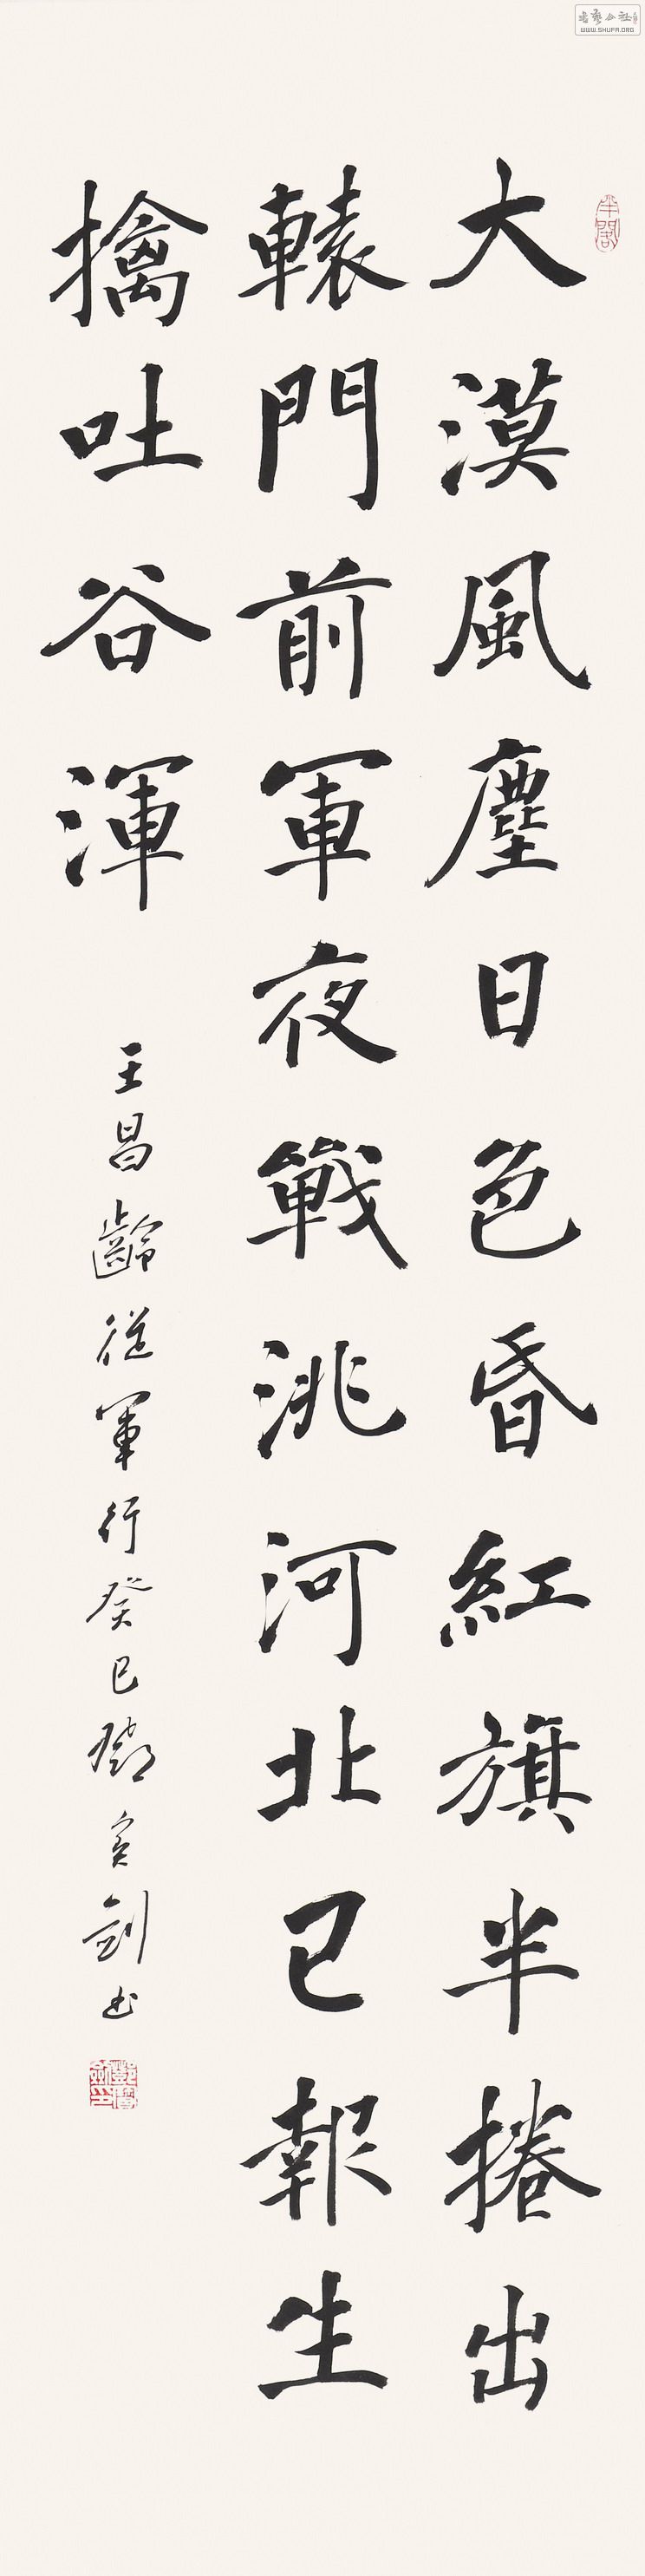 大漠風塵日色昏紅旗半捲出
轅門前軍夜戰洮河北已報生
擒吐谷渾
王昌齡從軍行癸巳鄧寶劍書
半閣
WWW.SHUFA.ORG